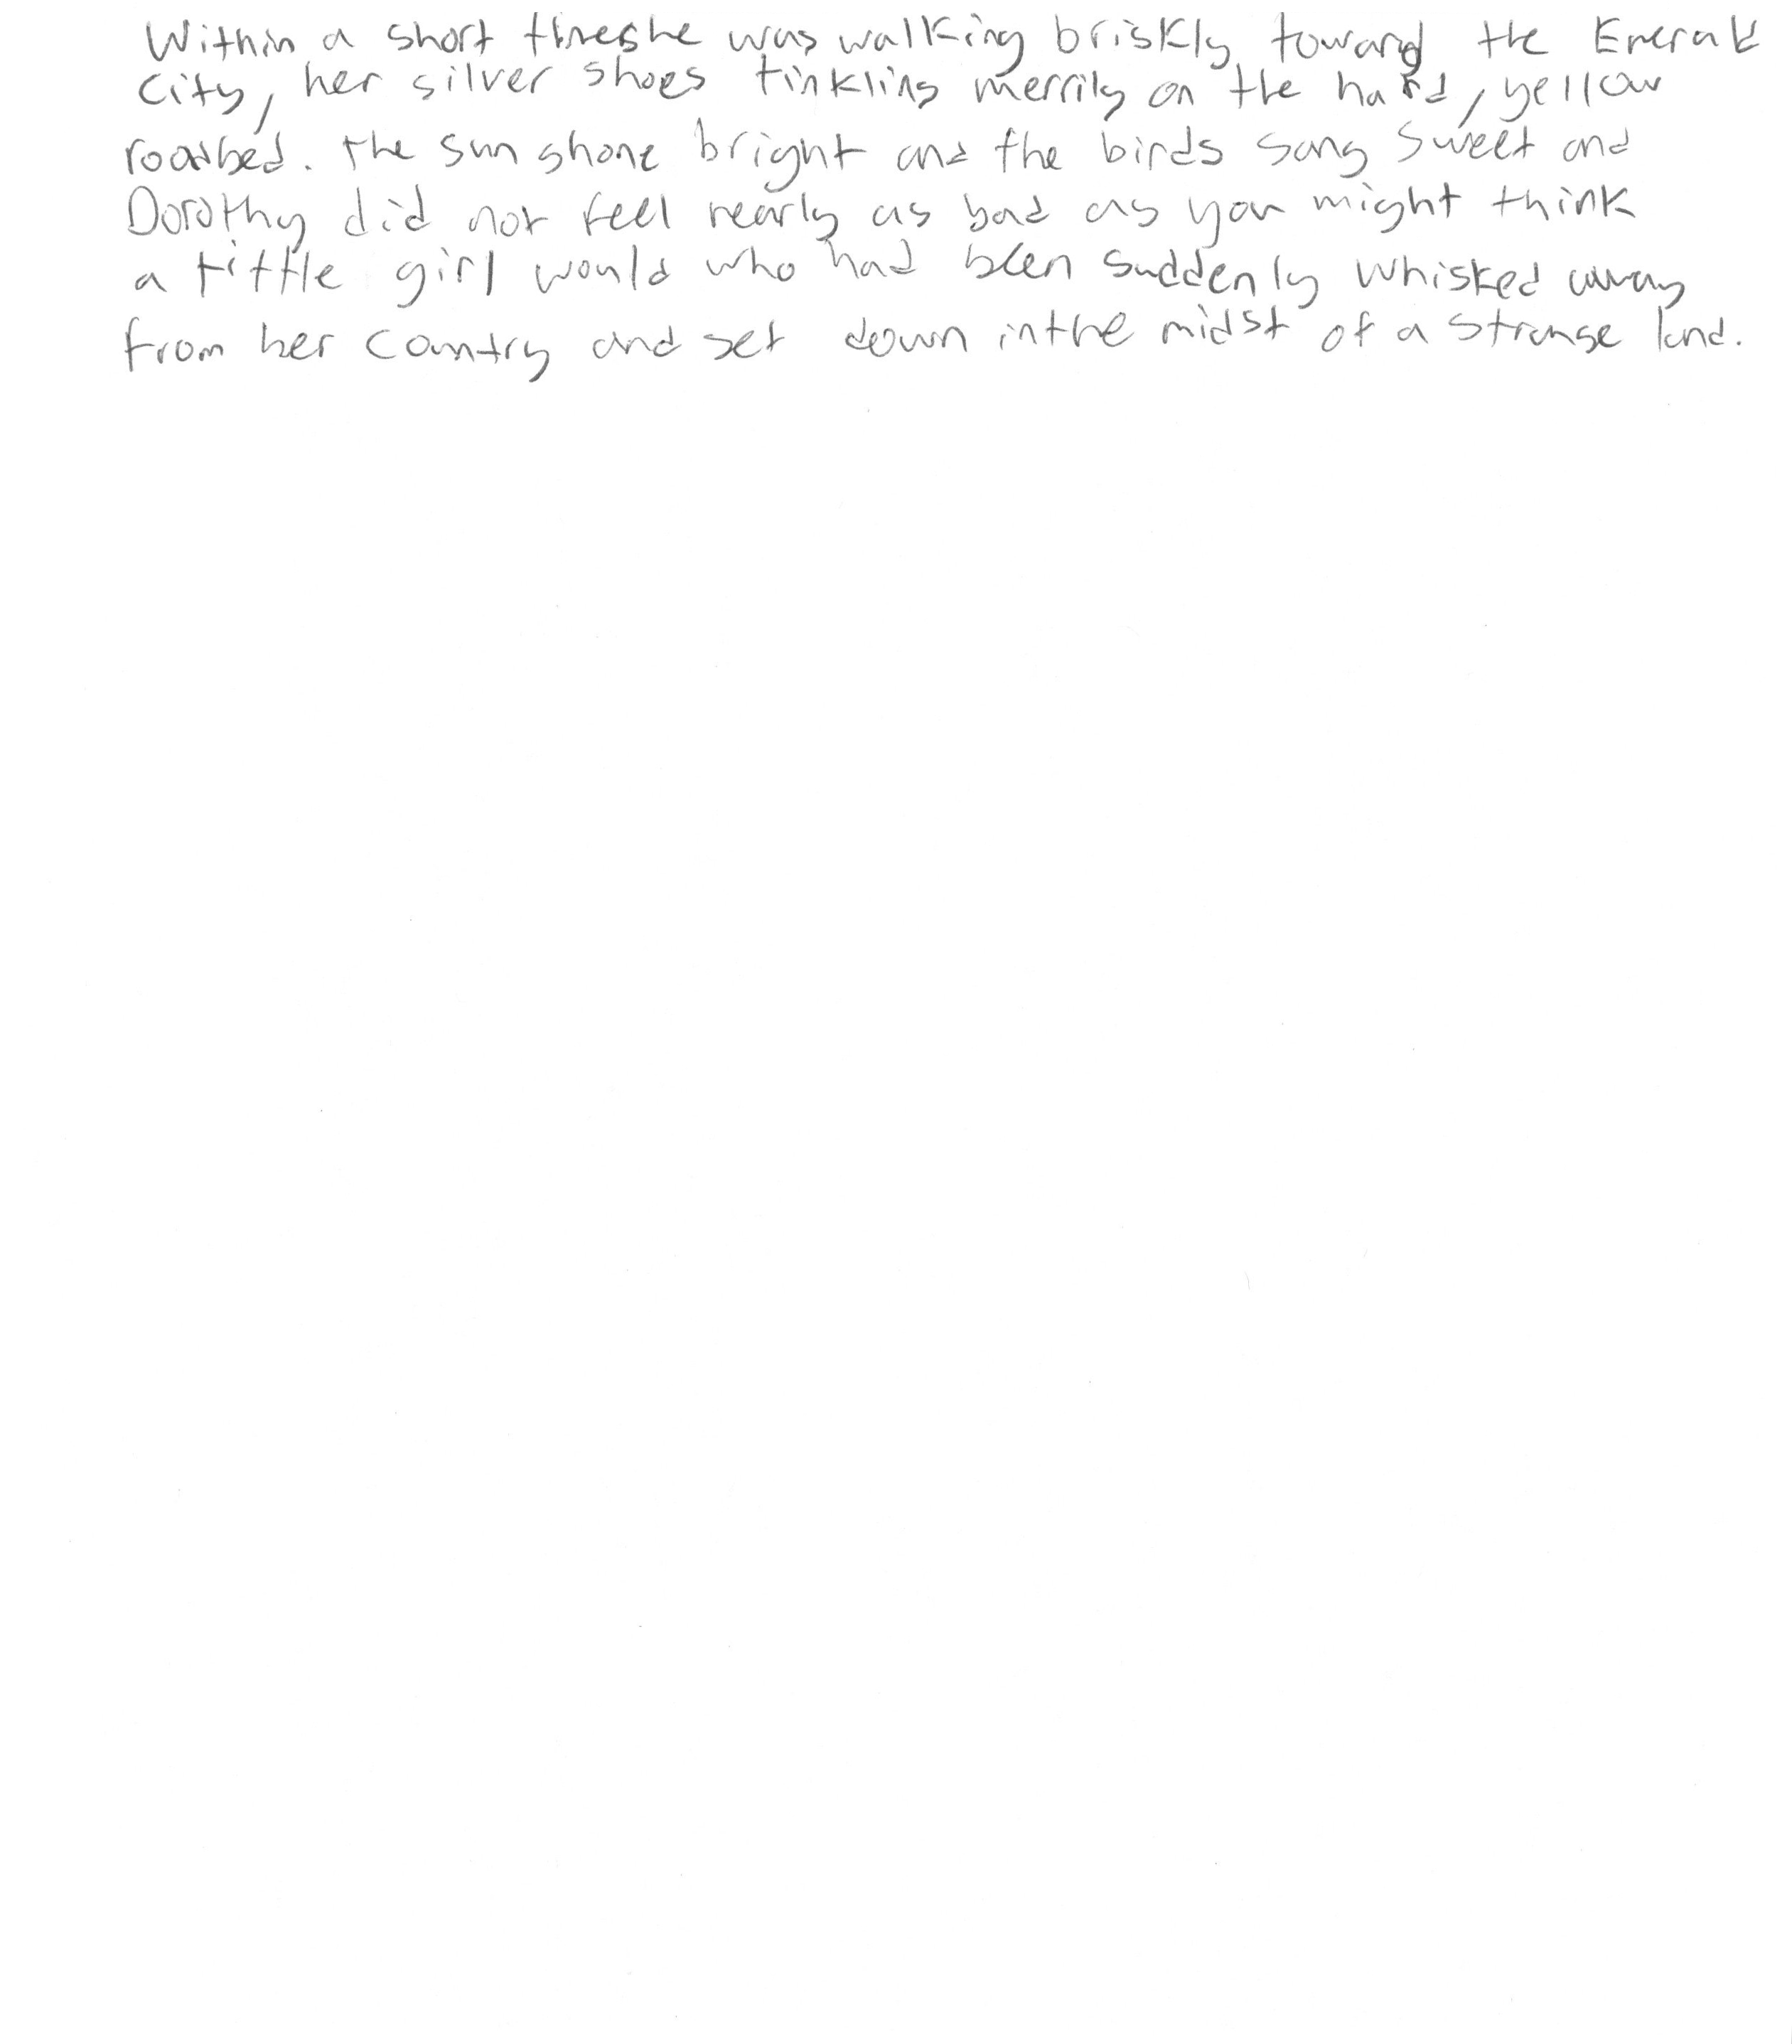 Within a short time she was walking briskly toward the Emerald
City, her silver shoes tinkling merrily on the hard, yellow
roadbed. The sun shone bright and the birds sang sweet and
Dorothy did not feel nearly as bad as you might think
a little girl would who had been suddenly whisked away
from her country and set down in the midst of a strange land.